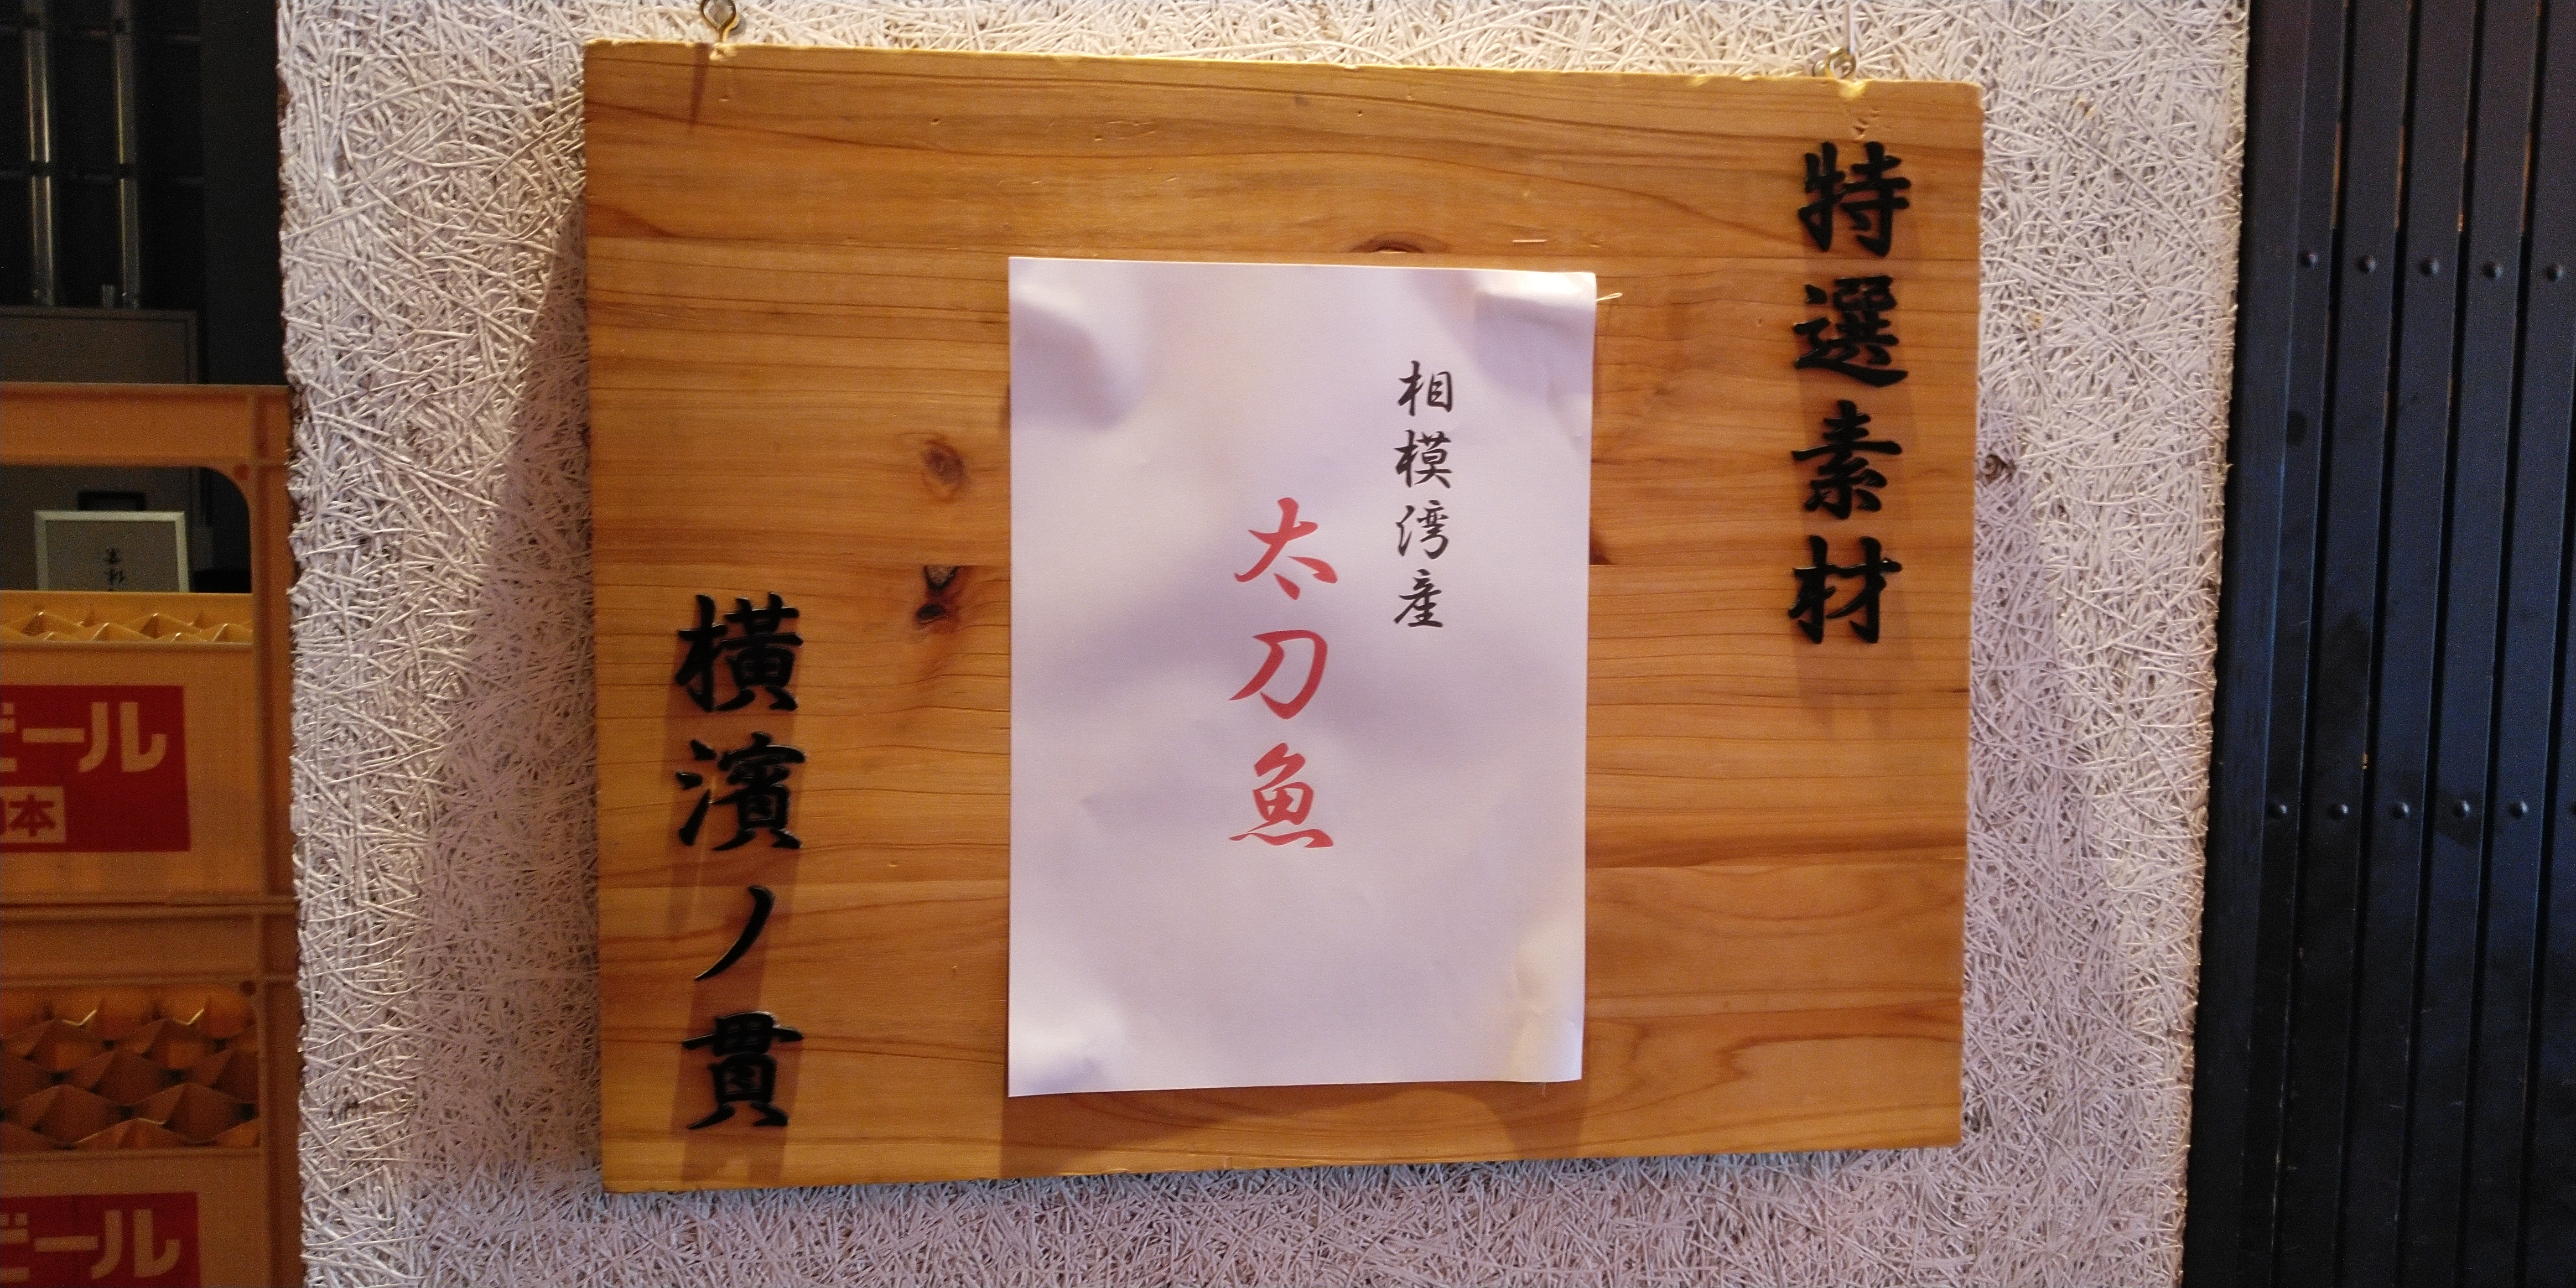 特選素材
相模湾産
太刀魚
横濱ノ貫
ビール
本
ビール